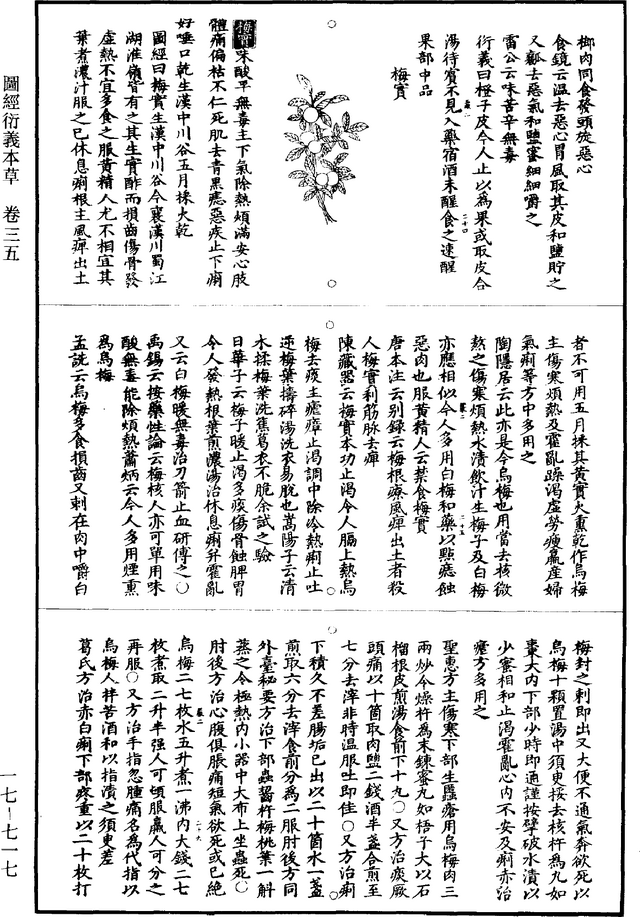 圖經衍義本草　卷三五
一七—七一七
榔肉同食發頭旋惡心
食鏡云溫去惡心胃風取其皮和鹽貯之
又瓤去惡氣和鹽蜜細細嚼之
雷公云味苦辛無毒
衍義曰橙子皮今人止以為果或取皮合
湯待賓不見入藥宿酒未醒食之速醒
果部中品
梅實
梅實味酸平無毒主下氣除熱煩滿安心肢
體痛偏枯不仁死肌去青黑痣惡疾止下痢
好唾口乾生漢中川谷五月採火乾
圖經曰梅實生漢中川谷今襄漢川蜀江
湖淮嶺皆有之其生實酢而損齒傷骨發
虛熱不宜多食之服黃精人尤不相宜其
葉煮濃汁服之已休息痢根主風痺出土
者不可用五月採其黃實火熏乾作烏梅
主傷寒煩熱及霍亂躁渴虛勞瘦羸產婦
氣痢等方中多用之
陶隱居云此亦是今烏梅也用當去核微
熬之傷寒煩熱水漬飲汁生梅子及白梅
亦應相似今人多用白梅和藥以點痣蝕
惡肉也服黃精人云禁食梅實
唐本注云別錄云梅根療風痺出土者殺
人梅實利筋脉去痺
陳藏器云梅實本功止渴令人膈上熱烏
梅去痰主瘧瘴止渴調中除冷熱痢止吐
逆梅葉擣碎湯洗衣易脫也嵩陽子云清
水揉梅葉洗蕉葛衣不脆余試之驗
日華子云梅子暖止渴多痰傷骨蝕脾胃
令人發熱根葉煎濃湯治休息痢并霍亂
又云白梅暖無毒治刀箭止血研傅之○
禹錫云按藥性論云梅核人亦可單用味
酸無毒能除煩熱蕭炳云今人多用煙熏
為烏梅
孟詵云烏梅多食損齒又刺在肉中嚼白
梅封之刺即出又大便不通氣奔欲死以
烏梅十顆置湯中須臾挼去核杵為丸如
棗大內下部少時即通謹按擘破水漬以
少蜜相和止渴霍亂心內不安及痢赤治
瘧方多用之
聖惠方主傷寒下部生䘌瘡用烏梅肉三
兩炒令燥杵為末鍊蜜丸如梧子大以石
榴根皮煎湯食前下十丸○又方治痰厥
頭痛以十箇取肉鹽二錢酒半盞合煎至
七分去滓非時溫服吐即佳○又方治痢
下積久不差腸垢已出以二十箇水一盞
煎取六分去滓食前分為二服肘後方同
外臺秘要方治下部蟲齧杵梅桃葉一斛
蒸之令極熱內小器中大布上坐蟲死○
肘後方治心腹俱脹痛短氣欲死或已絕
烏梅二七枚水五升煮一沸內大錢二七
枚煮取二升半強人可頓服羸人可分之
再服○又方治手指忽腫痛名為代指以
烏梅人拌苦酒和以指漬之須臾差
葛氏方治赤白痢下部疼重以二十枚打